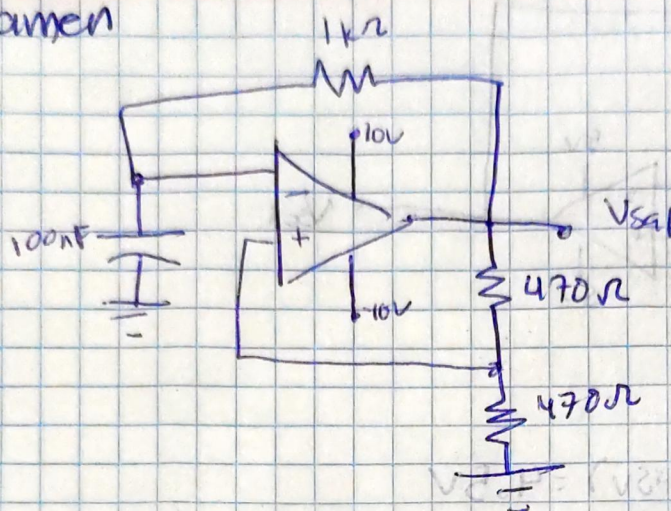 amen
1kΩ
10V
100nF
-
+
Vsal
470Ω
-10V
470Ω